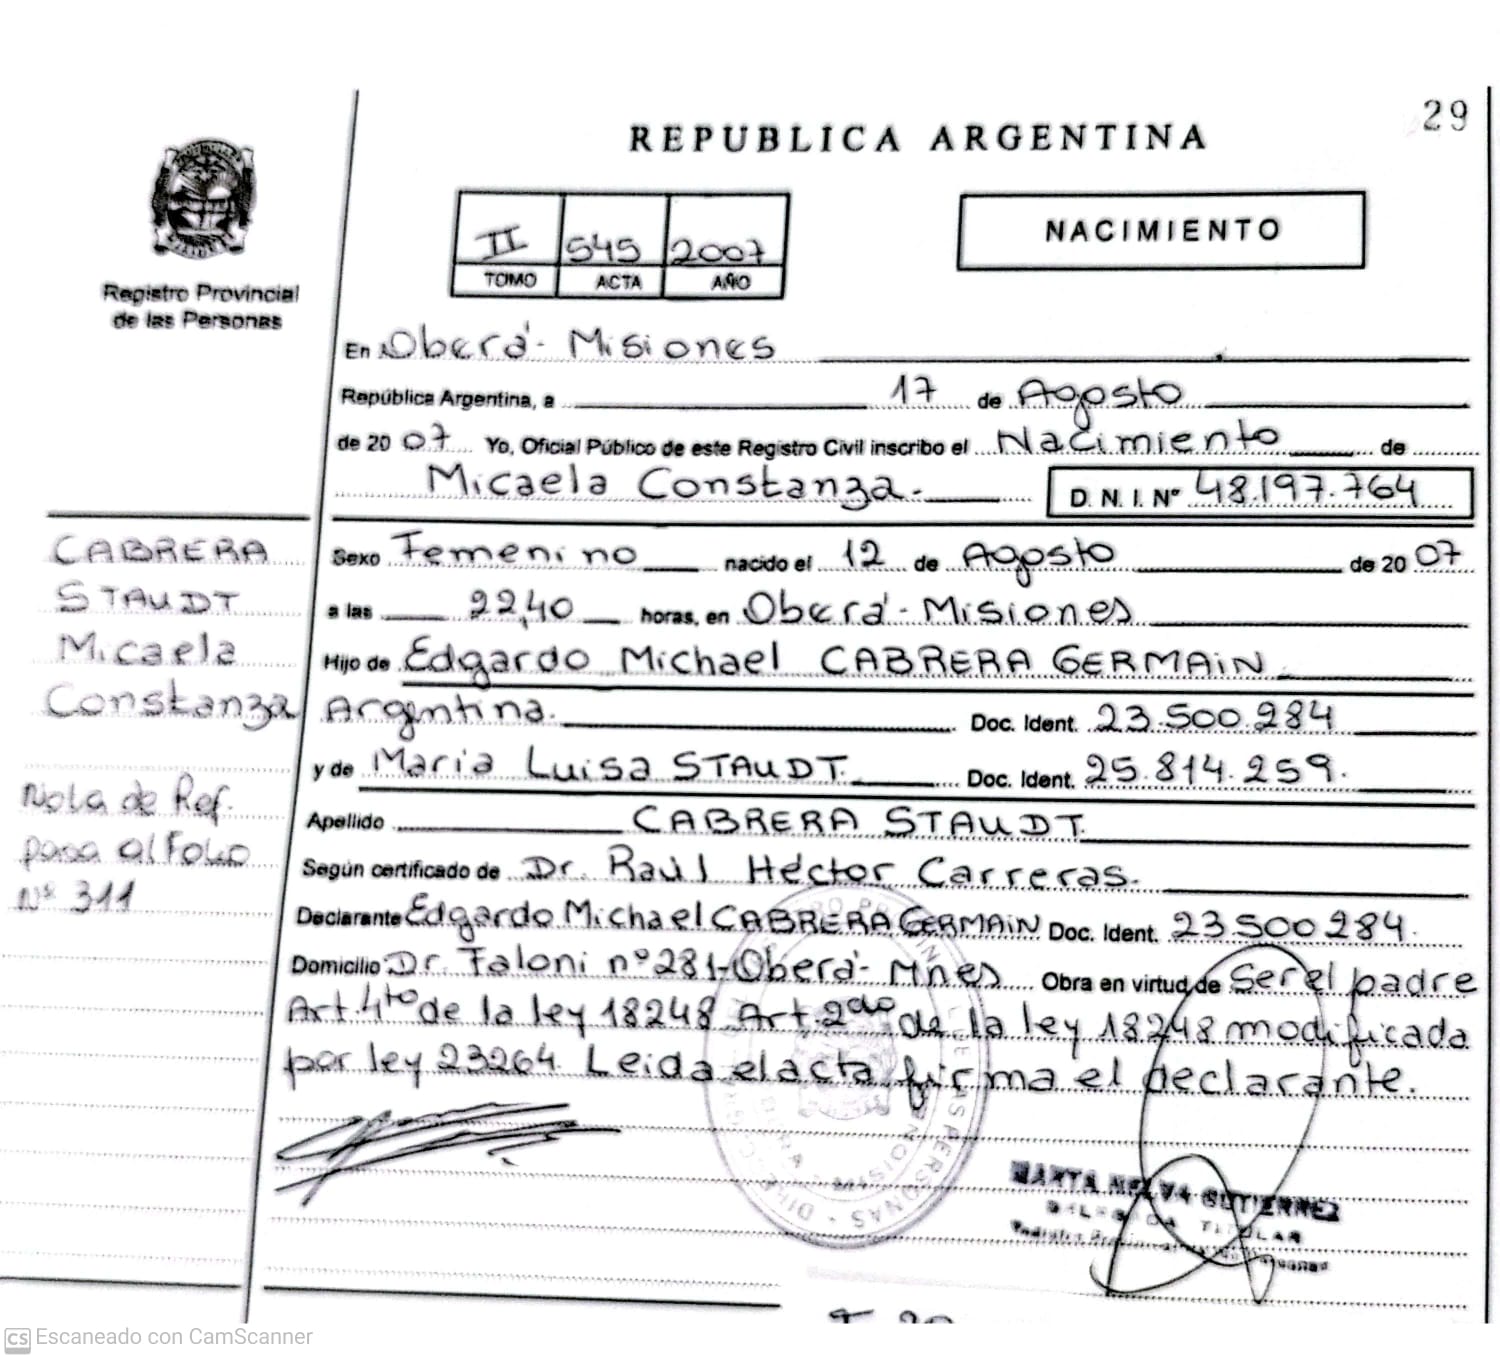 29
REPUBLICA ARGENTINA
Registro Provincial
de las Personas
II 545 2007
TOMO ACTA AÑO
NACIMIENTO
En Oberá - Misiones
República Argentina, a 17 de Agosto
de 20 07 Yo, Oficial Público de este Registro Civil inscribo el Nacimiento de
Micaela Constanza.- D. N. I. Nº 48.197.764
CABRERA
STAUDT
Micaela
Constanza
Nota de Ref.
pasa al Folio
Nº 311
Sexo Femenino nacido el 12 de Agosto de 20 07
a las 22,40 horas, en Oberá - Misiones
Hijo de Edgardo Michael CABRERA GERMAIN
Argentina. Doc. Ident. 23.500.284
y de Maria Luisa STAUDT. Doc. Ident. 25.814.259.
Apellido CABRERA STAUDT.
Según certificado de Dr. Raúl Héctor Carreras.
Declarante Edgardo Michael CABRERA GERMAIN Doc. Ident. 23.500.284.
Domicilio Dr. Faloni nº 281-Oberá- Mnes Obra en virtud de Ser el padre
Art. 4to de la ley 18248 Art. 2do de la ley 18248 modificada
por ley 23264. Leida el acta firma el declarante.
MARTA GUTIERREZ
TITULAR
CS Escaneado con CamScanner